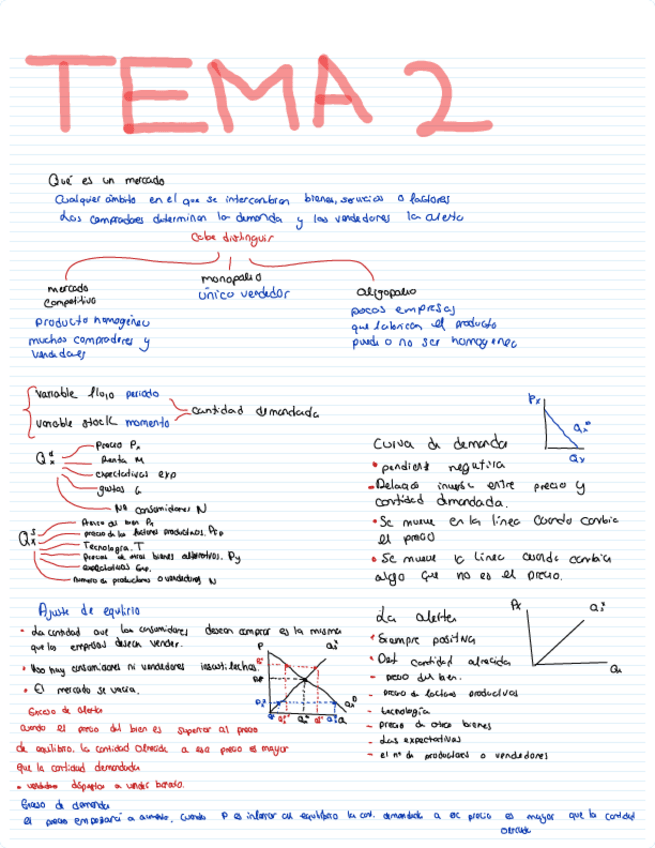 TEMA 2
Qué es un mercado
Cualquier ámbito en el que se intercambian bienes, servicios o factores
Los compradores determinan la demanda y los vendedores la oferta
Cabe distinguir
mercado
competitivo
producto homogéneo
muchos compradores y
vendedores
monopolio
único vendedor
oligopolio
pocas empresas
que fabrican el producto
puede o no ser homogéneo
variable flujo periodo
variable stock momento
cantidad demandada
Qx^d
Precio Px
Renta M
expectativas exp
gustos G
Nº consumidores N
Qx^s
precio de los factores productivos.
Tecnología. T
Precios de otros bienes alternativos. Py
expectativas
Número de productores o vendedores N
Curva de demanda
• pendiente negativa
• Relación inversa entre precio y
cantidad demandada.
• Se mueve en la línea cuando cambia
el precio
• Se mueve la línea cuando cambia
algo que no es el precio.
Px
Qx^D
Qx
Ajuste de equilirio
• La cantidad que los consumidores desean comprar es la misma
que los empresas desean vender.
• No hay consumidores ni vendedores insatisfechos.
• El mercado se vacia.
Exceso de oferta
cuando el precio del bien es superior al precio
de equilibrio. la cantidad ofrecida a ese precio es mayor
que la cantidad demandada
• vendedores dispuestos a vender barato.
Exceso de demanda
el precio empezará a aumentar, cuando P es inferior al equilibrio la cant. demandada a ese precio es mayor que la cantidad
ofrecida
La oferta
• Siempre positiva
• Def cantidad ofrecida
- precio del bien.
- precio de factores productivos
- tecnología
- precio de otros bienes
- Las expectativas
- el nº de productores o vendedores
Px
Qx^s
Qx